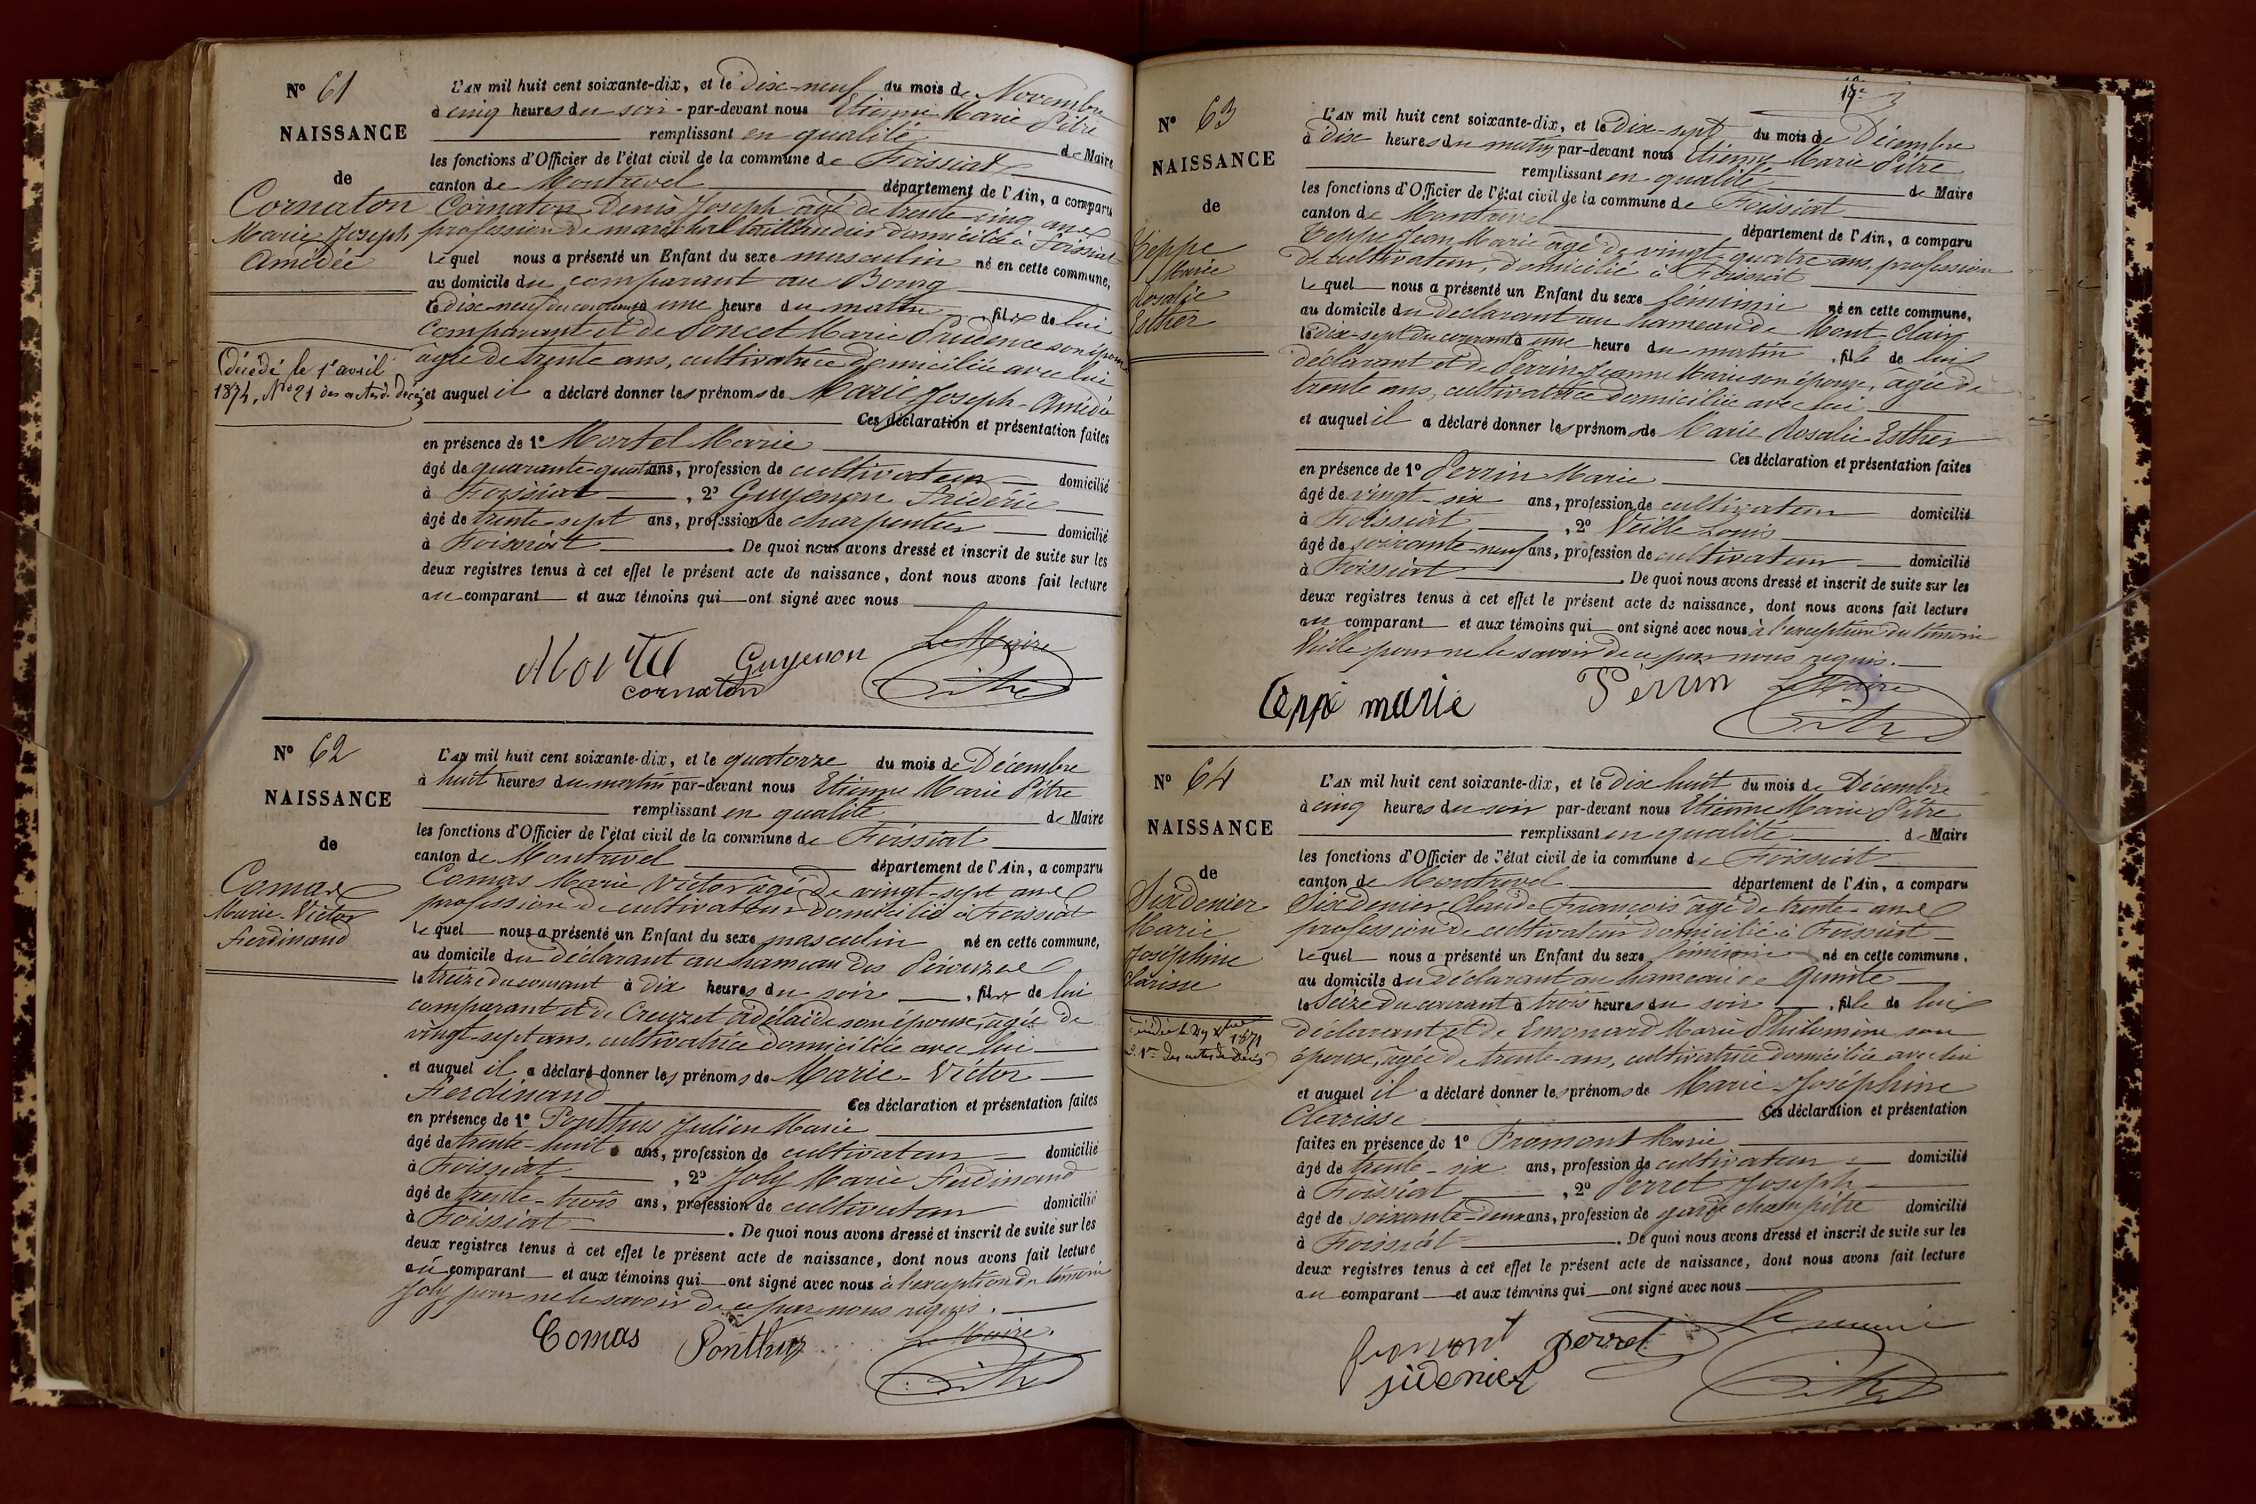 N° 61
NAISSANCE
de
Cornaton
Marie Joseph
Amédée
Décédé le 1er avril
1874, N° 21 des actes de décès
L'AN mil huit cent soixante-dix, et le Dix-neuf du mois de Novembre
à cinq heures du soir par-devant nous Etienne Marie Pitre
remplissant en qualité de Maire
les fonctions d'Officier de l'état civil de la commune de Foissiat
canton de Montrevel département de l'Ain, a comparu
Cornaton Denis Joseph âgé de trente cinq ans
profession de maréchal taillandier domicilié à Foissiat
lequel nous a présenté un Enfant du sexe masculin né en cette commune,
au domicile du comparant au Bourg
le dix-neuf du courant à une heure du matin, fils de lui
comparant et de Poncet Marie Prudence son épouse
âgée de trente ans, cultivatrice domiciliée avec lui
et auquel il a déclaré donner les prénoms de Marie Joseph-Amédée
Ces déclaration et présentation faites
en présence de 1° Martel Marie
âgé de quarante-quatre ans, profession de cultivateur domicilié
à Foissiat, 2° Guyenon Fréderic
âgé de trente-sept ans, profession de charpentier domicilié
à Foissiat. De quoi nous avons dressé et inscrit de suite sur les
deux registres tenus à cet effet le présent acte de naissance, dont nous avons fait lecture
au comparant et aux témoins qui ont signé avec nous
Le Maire
Guyenon
cornaton
Pitre
N° 62
NAISSANCE
de
Comas
Marie-Victor
Ferdinand
L'AN mil huit cent soixante-dix, et le quatorze du mois de Décembre
à huit heures du matin par-devant nous Etienne Marie Pitre
remplissant en qualité de Maire
les fonctions d'Officier de l'état civil de la commune de Foissiat
canton de Montrevel département de l'Ain, a comparu
Comas Marie Victor âgé de vingt-sept ans
profession de cultivateur domicilié à Foissiat
lequel nous a présenté un Enfant du sexe masculin né en cette commune,
au domicile du déclarant au hameau des
le treize du courant à dix heures du soir, fils de lui
comparant et de Creuzet Adélaïde son épouse, âgée de
vingt-sept ans, cultivatrice domiciliée avec lui
et auquel il a déclaré donner les prénoms de Marie-Victor
Ferdinand Ces déclaration et présentation faites
en présence de 1° Ponthus Julien Marie
âgé de trente-huit ans, profession de cultivateur domicilié
à Foissiat, 2° Joly Marie Ferdinand
âgé de trente-trois ans, profession de cultivateur domicilié
à Foissiat. De quoi nous avons dressé et inscrit de suite sur les
deux registres tenus à cet effet le présent acte de naissance, dont nous avons fait lecture
au comparant et aux témoins qui ont signé avec nous à l'exception du témoin
Joly pour ne le savoir de ce par nous requis.
Comas Ponthus Le Maire
Pitre
N° 63
NAISSANCE
de
Teppe
Marie
Rosalie
Esther
L'AN mil huit cent soixante-dix, et le Dix-sept du mois de Décembre
à dix heures du matin par-devant nous Etienne Marie Pitre
remplissant en qualité de Maire
les fonctions d'Officier de l'état civil de la commune de Foissiat
canton de Montrevel département de l'Ain, a comparu
Teppe Jean Marie âgé de vingt-quatre ans, profession
de cultivateur, domicilié à Foissiat
lequel nous a présenté un Enfant du sexe féminin né en cette commune,
au domicile du déclarant au hameau de Mont-Clair
le Dix-sept du courant à une heure du matin, fille de lui
déclarant et de Perrin Jeanne Marie son épouse, âgée de
trente ans, cultivatrice domiciliée avec lui
et auquel il a déclaré donner les prénoms de Marie Rosalie Esther
Ces déclaration et présentation faites
en présence de 1° Perrin Marie
âgé de vingt-six ans, profession de cultivateur domicilié
à Foissiat, 2° Veille Louis
âgé de soixante-neuf ans, profession de cultivateur domicilié
à Foissiat. De quoi nous avons dressé et inscrit de suite sur les
deux registres tenus à cet effet le présent acte de naissance, dont nous avons fait lecture
au comparant et aux témoins qui ont signé avec nous à l'exception du témoin
Veille pour ne le savoir de ce par nous requis.
Teppe marie Perrin Le Maire
Pitre
N° 64
NAISSANCE
de
Sixdenier
Marie
Joséphine
Clarisse
L'AN mil huit cent soixante-dix, et le Dix huit du mois de Décembre
à cinq heures du soir par-devant nous Etienne Marie Pitre
remplissant en qualité de Maire
les fonctions d'Officier de l'état civil de la commune de Foissiat
canton de Montrevel département de l'Ain, a comparu
Sixdenier Claude François âgé de trente ans
profession de cultivateur domicilié à Foissiat
lequel nous a présenté un Enfant du sexe féminin né en cette commune,
au domicile du déclarant au hameau de
le Seize du courant à trois heures du soir, fille de lui
déclarant et de Emonard Marie Philomène son
épouse, âgée de trente-ans, cultivatrice domiciliée avec lui
et auquel il a déclaré donner les prénoms de Marie-Joséphine
Clarisse Ces déclaration et présentation
faites en présence de 1° Fromont Marie
âgé de trente-six ans, profession de cultivateur domicilié
à Foissiat, 2° Perret Joseph
âgé de soixante-deux ans, profession de garde champêtre domicilié
à Foissiat. De quoi nous avons dressé et inscrit de suite sur les
deux registres tenus à cet effet le présent acte de naissance, dont nous avons fait lecture
au comparant et aux témoins qui ont signé avec nous
Le maire
fromont perret
Pitre